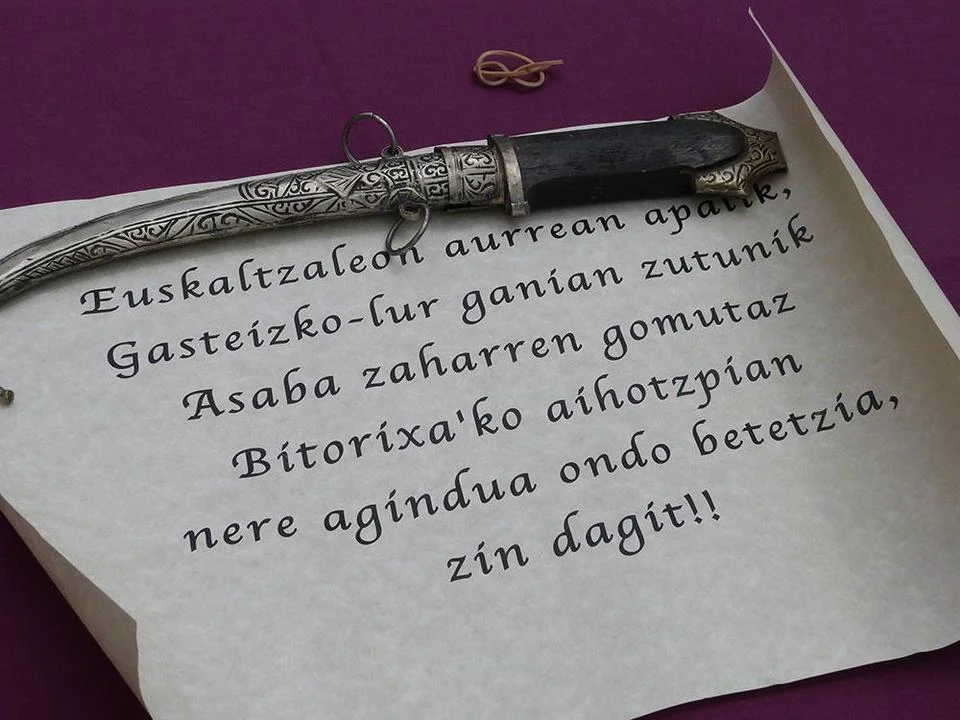 Euskaltzaleon aurrean apalik,
Gasteizko-lur ganian zutunik
Asaba zaharren gomutaz
Bitorixa'ko aihotzpian
nere agindua ondo betetzia,
zin dagit!!